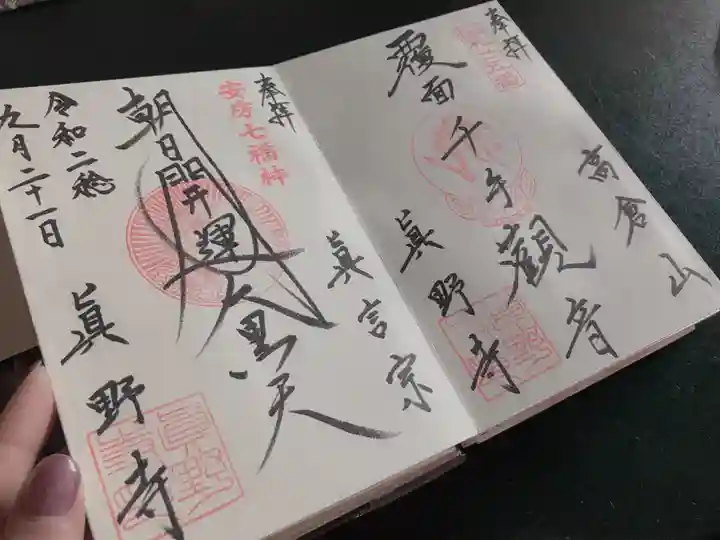 奉拝
高倉山
覆面千手觀音
眞野寺
眞言宗
奉拝
安房七福神
朝日開運大黒天
眞野寺
令和二稔
九月二十一日